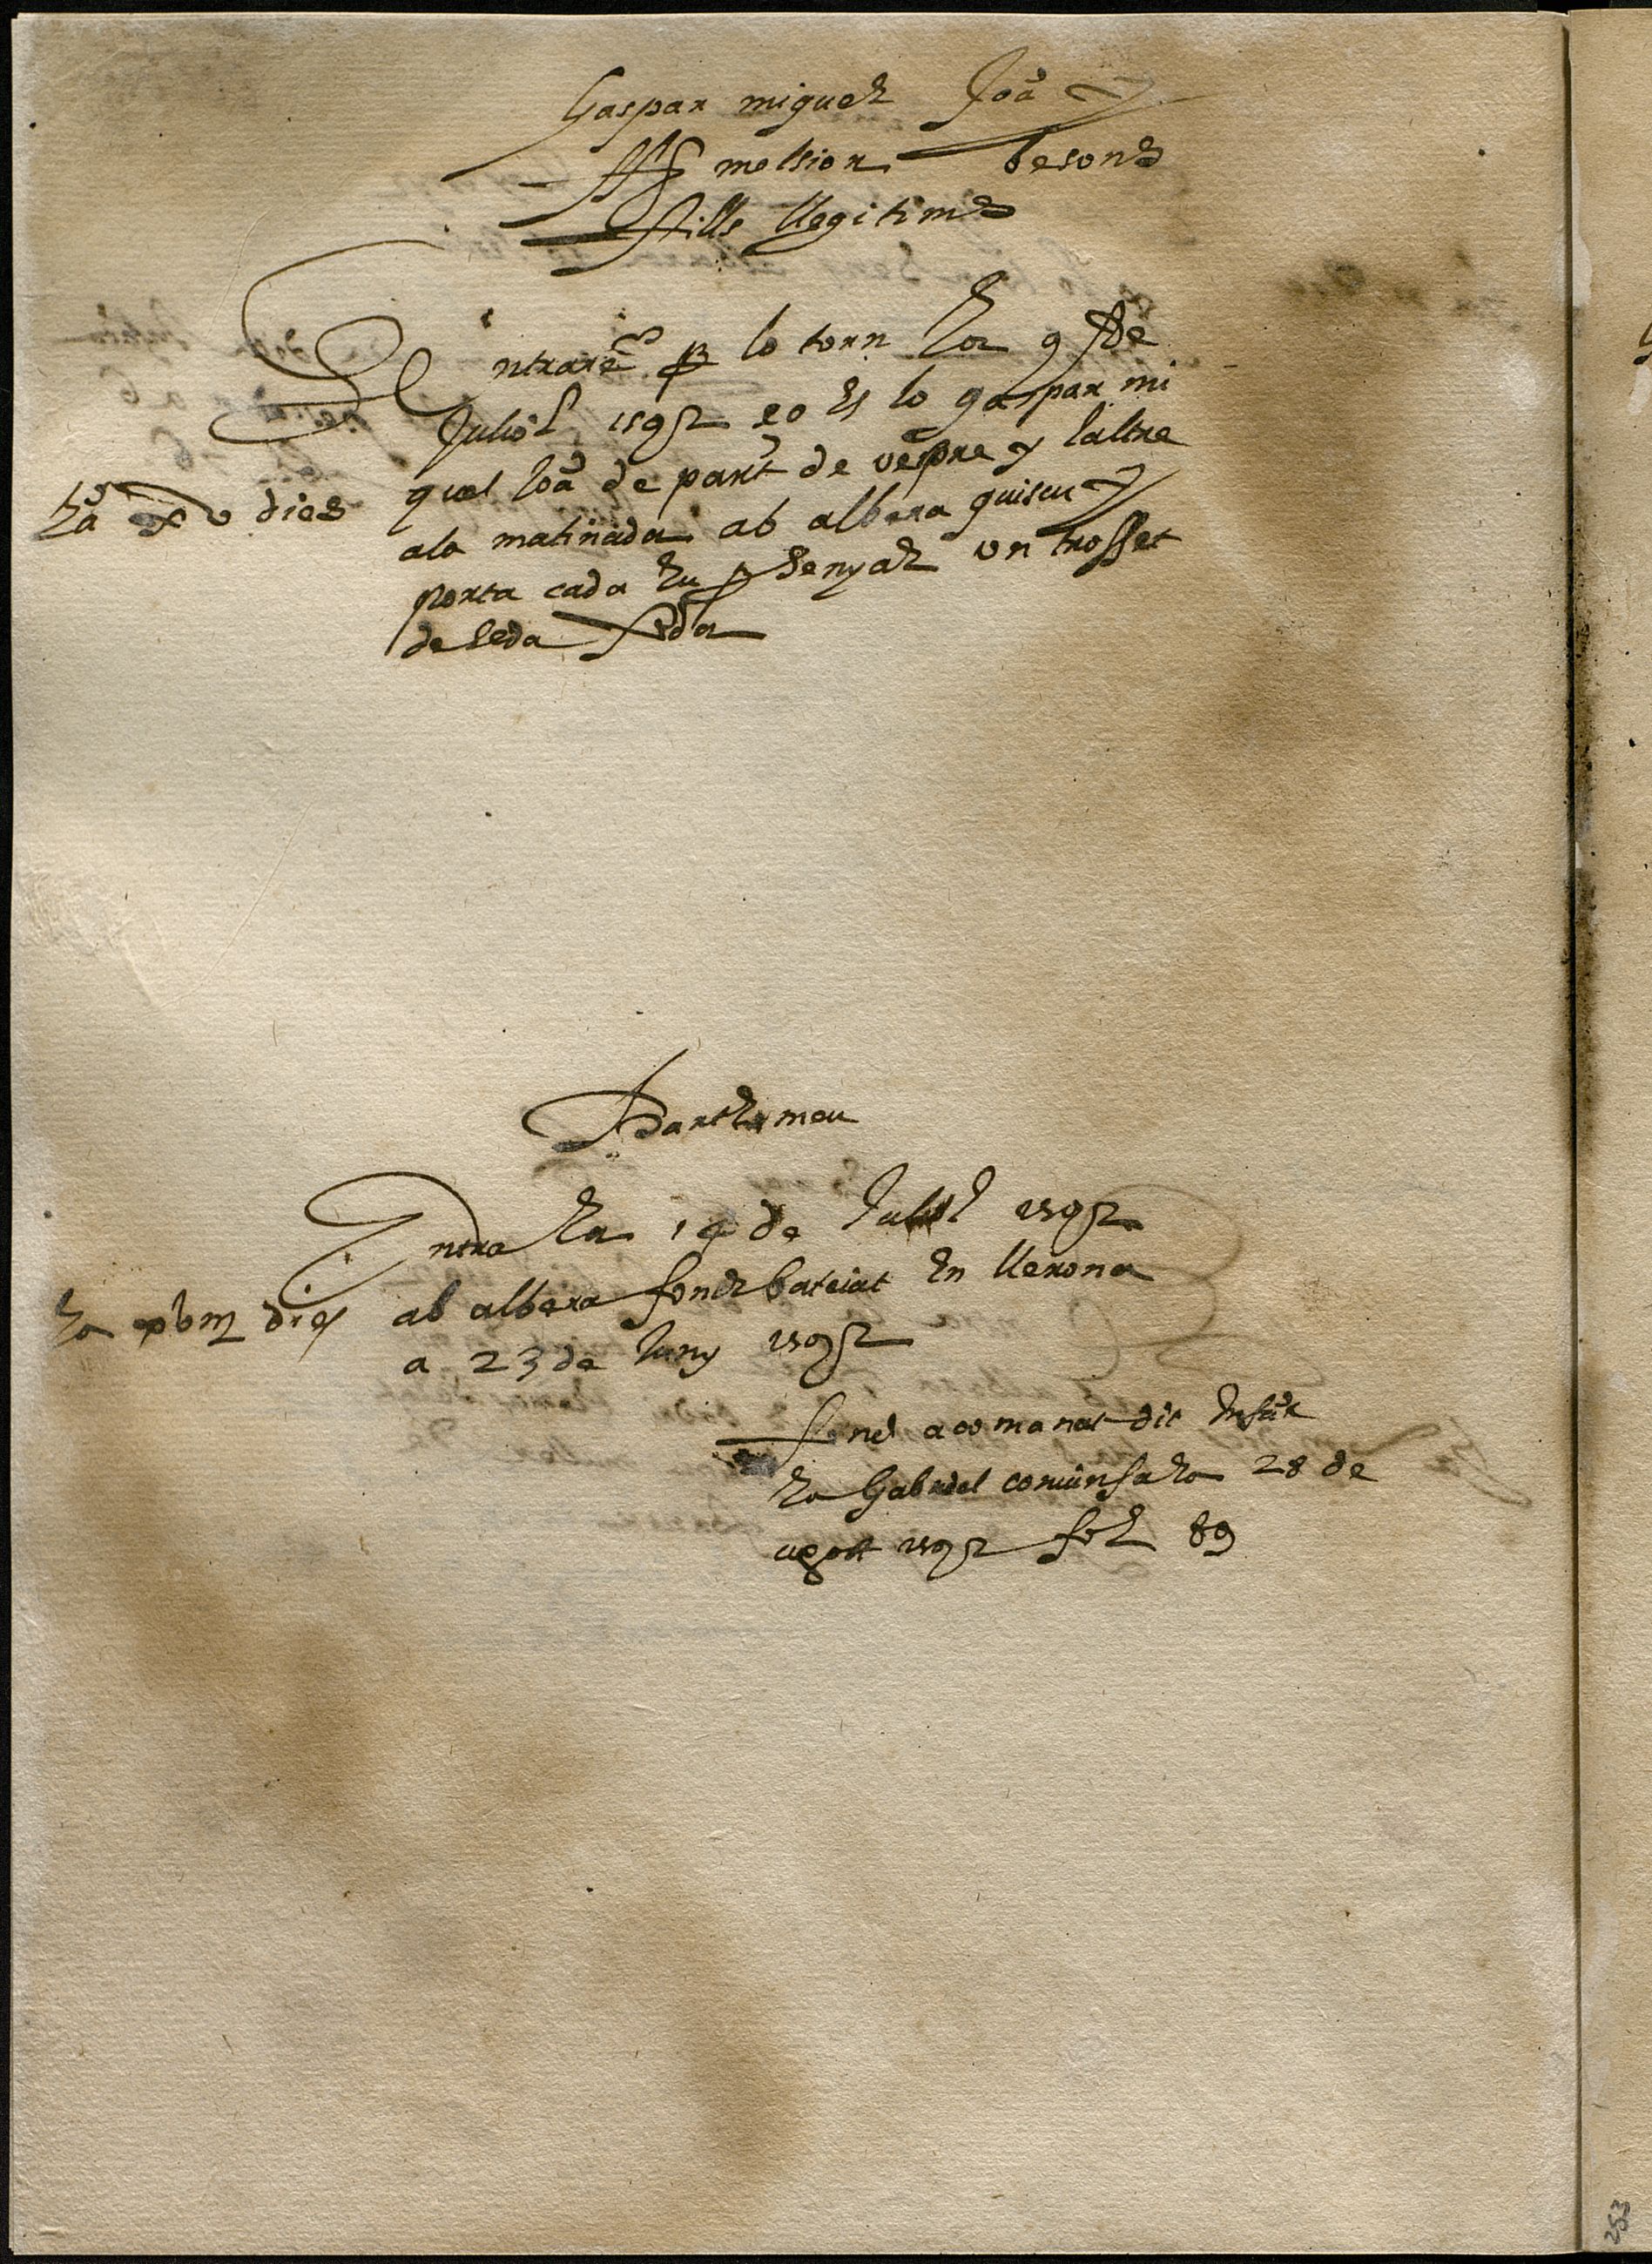 Gaspar miguel Joā y
melsior besons
fills llegitims
Entrarē p lo torn ha 9 de
Juliol 1592 ço es lo gaspar mi
quel Joā de part de vespre y laltre
ala matinada ab albera quiscu y
porta cada hu p senyal un trosset
de seda
ha xv dies
Barthomeu
Entra ha 14 de Juliol 1592
ab albera fonch bateiat en llerona
a 23 de Juny 1592
ha xviii dies
fonch acomanat dit infāt
ha Gabriel ha 28 de
agost 1592 fol 89
253